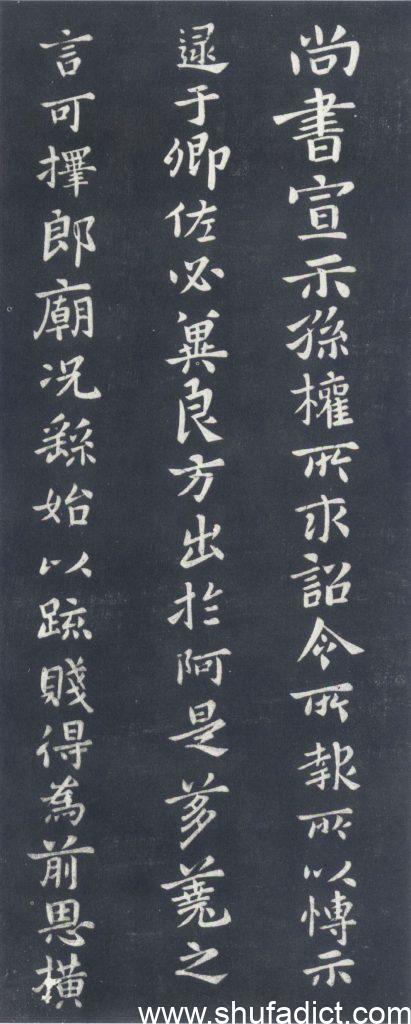 尚書宣示孫權所求詔令所報所以愽示
逮于卿佐必冀良方出於阿是芻蕘之
言可擇郎廟况繇始以疏賤得為前恩橫
www.shufadict.com